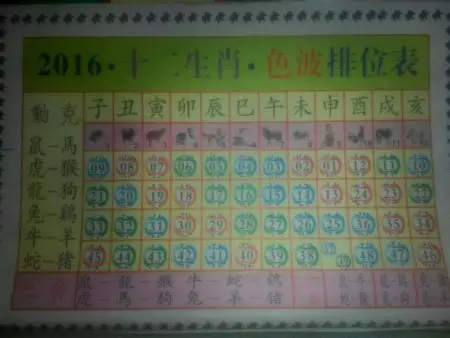 2016·十二生肖·色波排位表
動 克 子 丑 寅 卯 辰 巳 午 未 申 酉 戌 亥
鼠-馬
虎-猴 09 08 07 06 05 04 03 02 01 12 11 10
龍-狗 21 20 19 18 17 16 15 14 13 24 23 22
兔-鷄 33 32 31 30 29 28 27 26 25 36 35 34
牛-羊
蛇-猪 45 44 43 42 41 40 39 38 37 49 48 47 46
鼠-龍-猴 牛-蛇-鷄
虎-馬-狗 兔-羊-猪